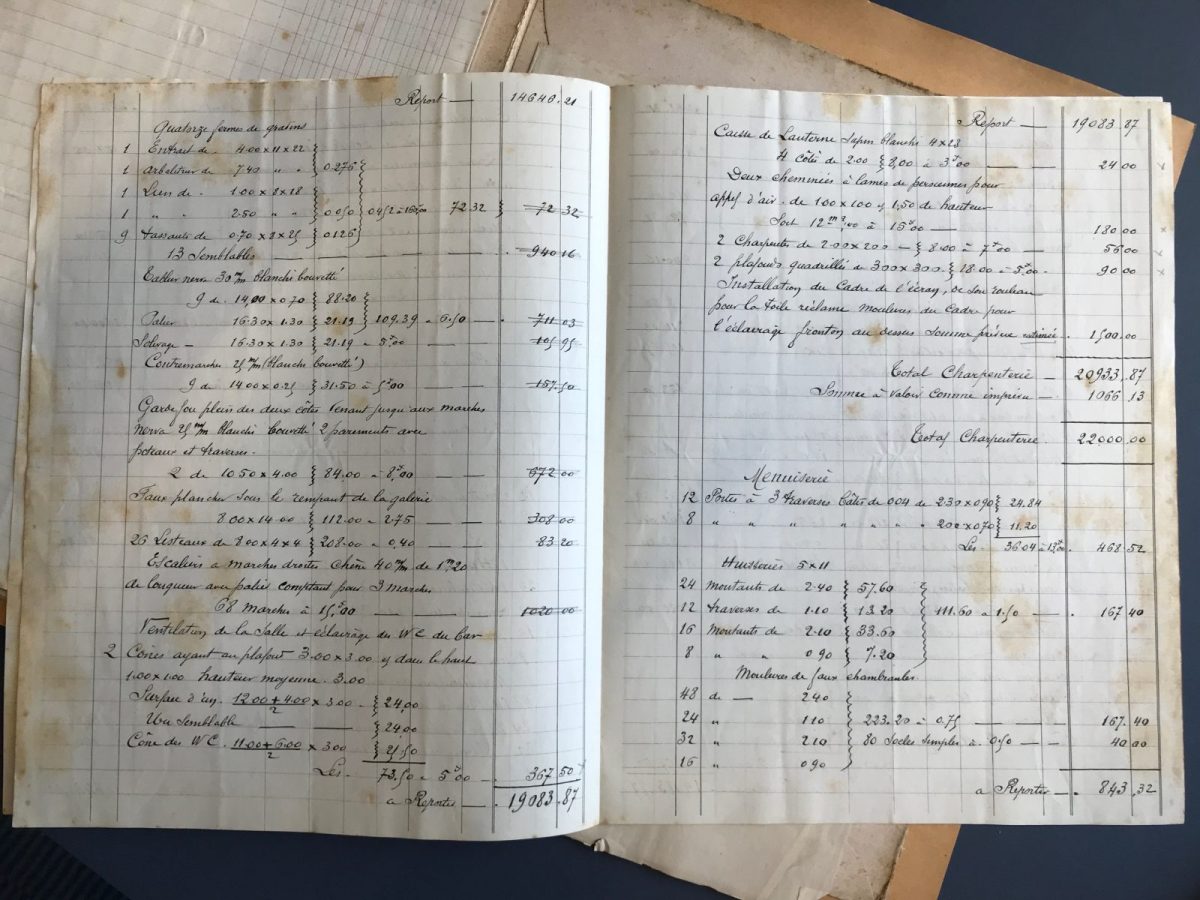 Report — 14646.21
Quatorze fermes de gradins
1 Entrait de 4.00 x 11 x 22
1 arbalétrier de 7.40 " " 0.276
1 Lien de 1.00 x 8 x 28
1 " " 2.50 " " 0.050 0.452 à 160,00 72.32 72.32
9 tassauts de 0.70 x 8 x 25 0.126
13 Semblables — 940.16
nerva 30 m/m blanchi bouvetté
9 de 14,00 x 0.70 88.20
Palier 16.30 x 1.30 21.19 109.39 à 6.50 — 711.03
Solivage — 16.30 x 1.30 21.19 à 5,00 — 105.95
Contremarches 25 m/m (blanchi bouvetté)
9 de 14.00 x 0.25 31.50 à 5,00 — 157.50
Garde fou plein des deux côtés venant jusqu'aux marches
nerva 25 m/m blanchi bouvetté 2 parements avec
poteaux et traverses.
2 de 10.50 x 4.00 84.00 à 8,00 — 672.00
Faux plancher sous le rempant de la galerie
8.00 x 14.00 112.00 à 2.75 — 308.00
26 Listeaux de 8.00 x 4 x 4 208.00 à 0,40 — 83.20
Escaliers à marches droites chêne 40 m/m de 1m20
de longueur avec palier comptant pour 3 marches
68 marches à 15f,00 — 1020.00
Ventilation de la Salle et éclairage des WC du Bar
2 Cônes ayant au plafond 3.00 x 3.00 et dans le haut
1.00 x 1.00 hauteur moyenne. 3.00
Surface d'un. 12.00 + 4.00 / 2 x 3.00 - 24,00
Un Semblable — 24.00
Cône des WC. 11.00 + 6.00 / 2 x 3.00 25,50
Les — 73.50 à 5f00 — 367.50
à Reporter — 19083.87
Report — 19083.87
Caisse de Lanterne sapin blanchi 4 x 28
4 côtés de 2.00 8,00 à 3f00 — 24.00
Deux cheminées à lames de persiennes pour
appel d'air. de 1.00 x 1.00 et 1,50 de hauteur
Soit 12m²,00 à 15f00 — 180.00
2 Charpentes de 2.00 x 2.00 — 8.00 à 7f00 — 56.00
2 plafonds quadrillés de 3.00 x 3.00 18.00 à 5f00 - 90.00
Installation du Cadre de l'écran, de son rouleau
pour la toile réclame moulures du cadre pour
l'éclairage fronton au dessus Somme prévue estimée. 1,500.00
Total Charpenterie — 20933.87
Somme à valoir comme imprévu — 1066.13
Total Charpenterie. 22000.00
Menuiserie
12 Portes à 3 traverses bâtis de 0.04 de 2.30 x 0.90 24.84
8 " " " " " " 2.00 x 0.70 11.20
Les 36.04 à 13f00 . 468.52
Huisseries 5 x 11
24 montants de 2.40 57.60
12 traverses de 1.10 13.20 111.60 à 1.50 — 167.40
16 montants de 2.10 33.60
8 " " 0.90 7.20
Moulures de faux chambranles
48 de — 2.40
24 " 1.10 223.20 à 0.75 — 167.40
32 " 2.10 80 Socles simples à 0.50 — 40.00
16 " 0.90
à Reporter — 843.32